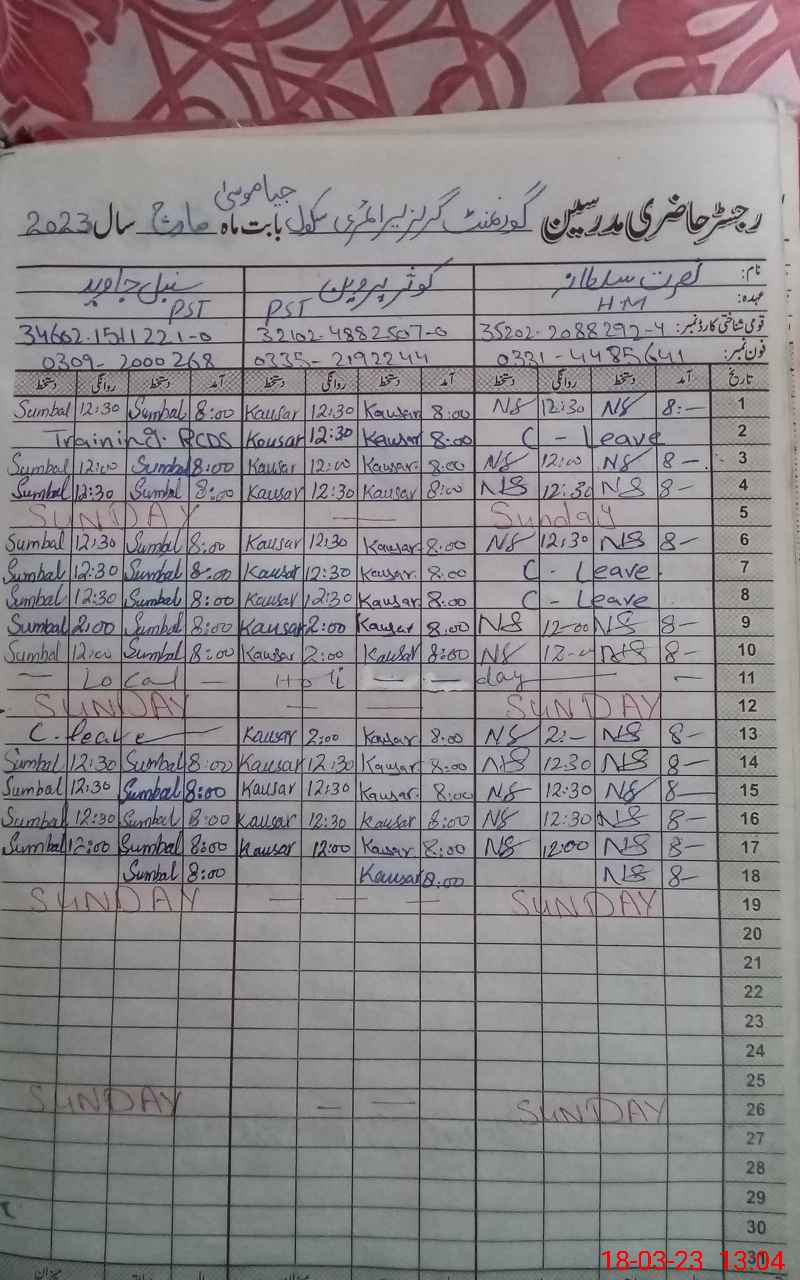 جیا موسیٰ
رجسٹر حاضری مدرسین گورنمنٹ گرلز پرائمری سکول بابت ماہ مارچ سال 2023
نام: نصرت سلطانہ کوثر پروین سنبل جاوید
عہدہ: H.M PST PST
قومی شناختی کارڈ نمبر: 35202-2088292-4 32102-4882507-0 34602-1511221-0
فون نمبر: 0331-4485641 0335-2192244 0309-2000268
تاریخ آمد دستخط روانگی دستخط آمد دستخط روانگی دستخط آمد دستخط روانگی دستخط
Sumbal 12:30 Sumbal 8:00 Kausar 12:30 Kausar 8:00 NS 12:30 NS 8:— 1
Training. PCDS Kausar 12:30 Kausar 8:00 C - Leave 2
Sumbal 12:00 Sumbal 8:00 Kausar 12:00 Kausar. 8:00 NS 12:00 NS 8— 3
Sumbal 12:30 Sumbal 8:00 Kausar 12:30 Kausar 8:00 NS 12:30 NS 8— 4
SUNDAY — Sunday 5
Sumbal 12:30 Sumbal 8:00 Kausar 12:30 Kausar 8.00 NS 12:30 NS 8— 6
Sumbal 12:30 Sumbal 8:00 Kausar 12:30 Kausar. 8.00 C - Leave 7
Sumbal 12:30 Sumbal 8:00 Kausar 12:30 Kausar. 8:00 C - Leave 8
Sumbal 2:00 Sumbal 8:00 Kausar 2:00 Kausar 8.00 NS 12-00 NS 8— 9
Sumbal 12:00 Sumbal 8:00 Kausar 2:00 Kausar 8:00 NS NS 8— 10
— Local — Holi — — day — — 11
SUNDAY — — SUNDAY 12
C. leave — Kausar 2:00 Kausar 8.00 NS 2:— NS 8— 13
Sumbal 12:30 Sumbal 8:00 Kausar 12:30 Kausar 8:00 NS 12.30 NS 8— 14
Sumbal 12:30 Sumbal 8:00 Kausar 12:30 Kausar. 8:00 NS 12:30 NS 8— 15
Sumbal 12:30 Sumbal 8:00 Kausar 12:30 Kausar 8:00 NS 12:30 NS 8— 16
Sumbal 12:00 Sumbal 8:00 Kausar 12:00 Kausar 8:00 NS 12:00 NS 8— 17
Sumbal 8:00 Kausar 8.00 NS 8— 18
SUNDAY — — — SUNDAY 19
20
21
22
23
24
25
SUNDAY — — SUNDAY 26
27
28
29
30
31
18-03-23 13:04